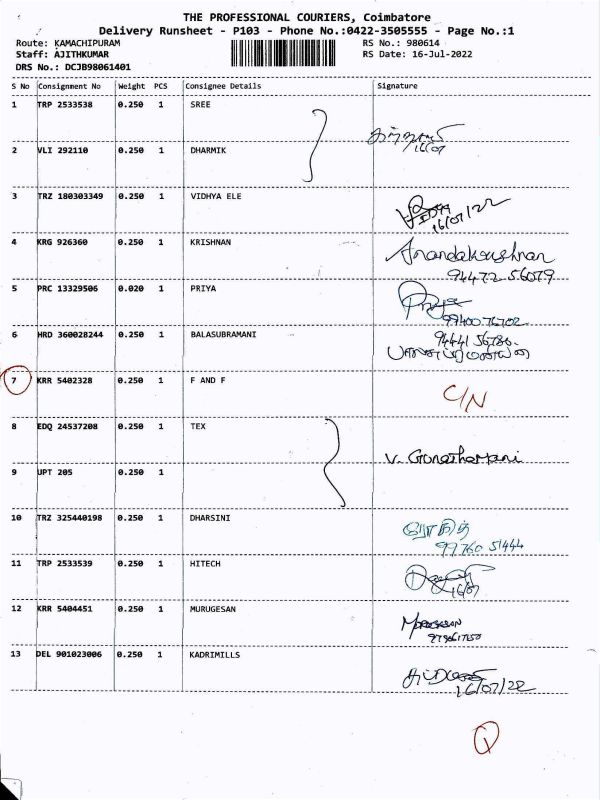 THE PROFESSIONAL COURIERS, Coimbatore
Delivery Runsheet - P103 - Phone No.:0422-3505555 - Page No.:1
Route: KAMACHIPURAM RS No.: 980614
Staff: AJITHKUMAR RS Date: 16-Jul-2022
DRS No.: DCJB98061401
S No Consignment No Weight PCS Consignee Details Signature
1 TRP 2533538 0.250 1 SREE
16/07
2 VLI 292110 0.250 1 DHARMIK
3 TRZ 180303349 0.250 1 VIDHYA ELE
16/07/22
4 KRG 926360 0.250 1 KRISHNAN Anandakrishnan
94472 56079
5 PRC 13329506 0.020 1 PRIYA Priya
9940076702
6 HRD 360028244 0.250 1 BALASUBRAMANI 94441 56780.
7 KRR 5402328 0.250 1 F AND F C/N
8 EDQ 24537208 0.250 1 TEX
V. Gunathamani
9 UPT 205 0.250 1
10 TRZ 325440198 0.250 1 DHARSINI ரோகித்
99760 51444
11 TRP 2533539 0.250 1 HITECH
16/07
12 KRR 5404451 0.250 1 MURUGESAN
13 DEL 901023006 0.250 1 KADRIMILLS
16/07/22